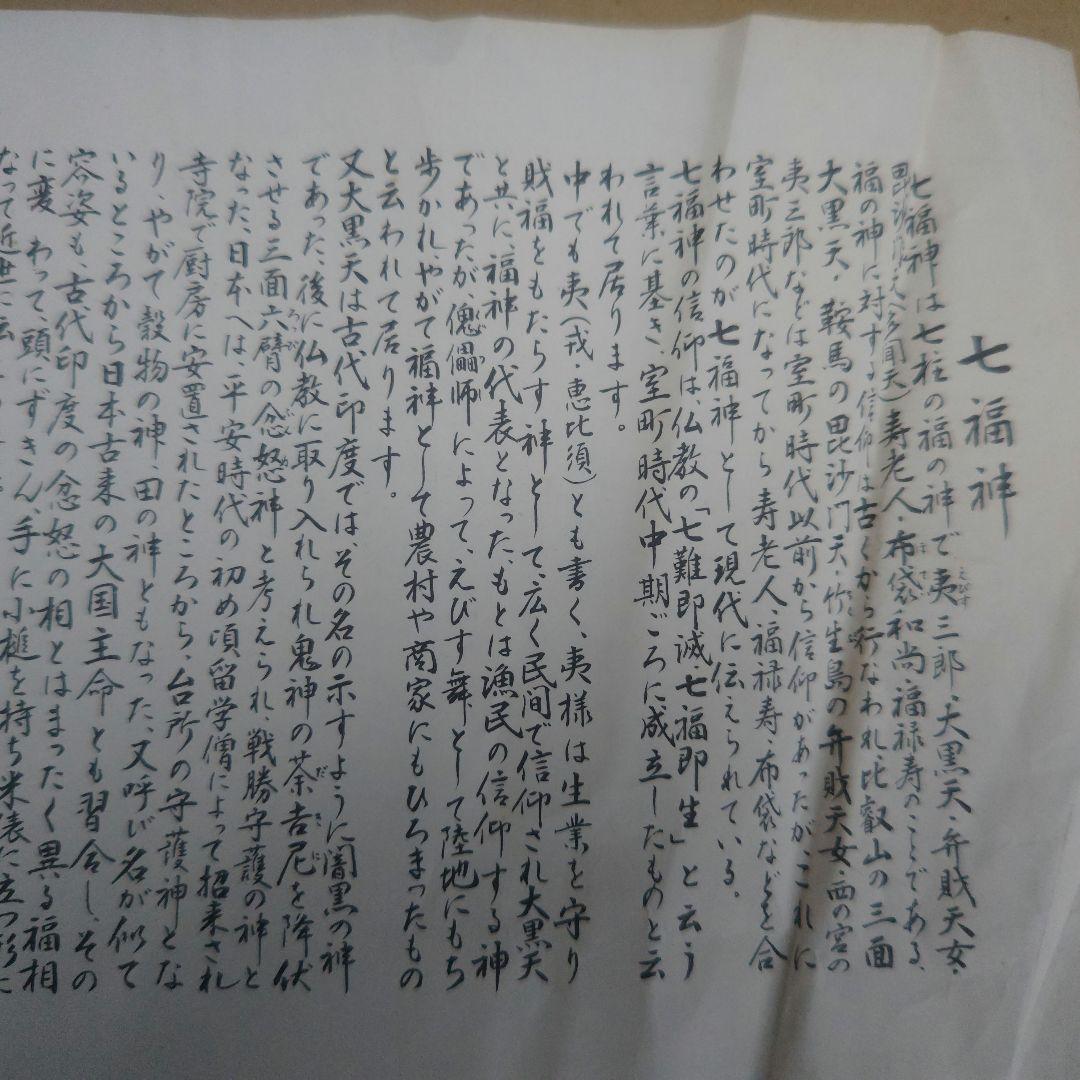 七福神
七福神は七柱の福の神で夷三郎・大黒天・弁財天女・
毘沙門天(多聞天)寿老人・布袋和尚・福禄寿のことである、
福の神に対する信仰は古くから行なわれ、比叡山の三面
大黒天・鞍馬の毘沙門天・竹生島の弁財天女・西の宮の
夷三郎などは室町時代以前から信仰があったが、これに
室町時代になってから寿老人、福禄寿、布袋などを合
わせたのが七福神として現代に伝えられている。
七福神の信仰は仏教の「七難即滅七福即生」と云う
言葉に基き、室町時代中期ごろに成立したものと云
われて居ります。
中でも夷(戎・恵比須)とも書く、夷様は生業を守り
財福をもたらす神として、広く民間で信仰され大黒天
と共に、福神の代表となった、もとは漁民の信仰する神
であったが、傀儡師によって、えびす舞として陸地にもち
歩かれ、やがて福神として農村や商家にもひろまったもの
と云われて居ります。
又大黒天は古代印度では、その名の示すように闇黒の神
であった、後に仏教に取り入れられ鬼神の荼吉尼を降伏
させる三面六臂の忿怒神と考えられ、戦勝守護の神と
なった、日本へは、平安時代の初め頃留学僧によって招来され
寺院で厨房に安置されたところから、台所の守護神とな
り、やがて穀物の神、田の神ともなった、又呼び名が似て
いるところから日本古来の大国主命とも習合し、その
容姿も、古代印度の忿怒の相とはまったく異る福相
に変わって、頭にずきん、手に小槌を持ち米俵に立つ形に
なって近世に